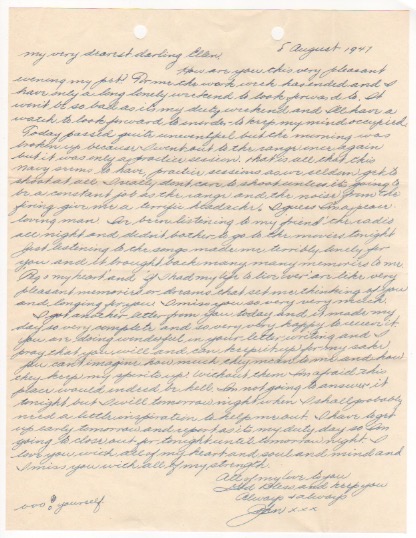 My very dearest darling Ellen, 5 August 1947
How are you this very pleasant
evening my pet? For me the work week has ended and I
have only a long lonely weekend to look forward to. It
won't be so bad as its my duty weekend and I'll have a
watch to look forward to in order to keep my mind occupied.
Today passed quite uneventful but the morning was
broken up because I went out to the range once again
but it was only a practice session. That is all that this
navy seems to have, practice sessions as we seldom get to
shoot at all. I really don't care to shoot unless it's going to
be a constant job as the range and the noise from the
firing give me a terrific headache.
loving man. I've been listening to my friend the radio
all night and didn't bother to go to the movies tonight
Just listening to the songs made me terribly lonely for
you and it brought back many many memories to me.
Peg o my heart and if I had my life to live over are like very
pleasant memories or dreams that set me thinking of you
and longing for you. I miss you so very very much.
I got another letter from you today and it made my
day so very complete and so very very happy to receive it
you are doing wonderful in your letter writing and I
pray that you will and can keep it up for my sake
you can't imagine how much they mean to me and how
they keep my spirits up. Without them I'm afraid this
place would indeed be hell. I'm not going to answer it
tonight but I will tomorrow night when I shall probably
need a little inspiration to help me out. I have to get
up early tomorrow and report as its my duty day so I'm
going to close out for tonight until tomorrow night. I
love you with all of my heart and soul and mind and
I miss you with all of my strength.
All of my love to you
God Bless and keep you
Always & always
xxx
yourself